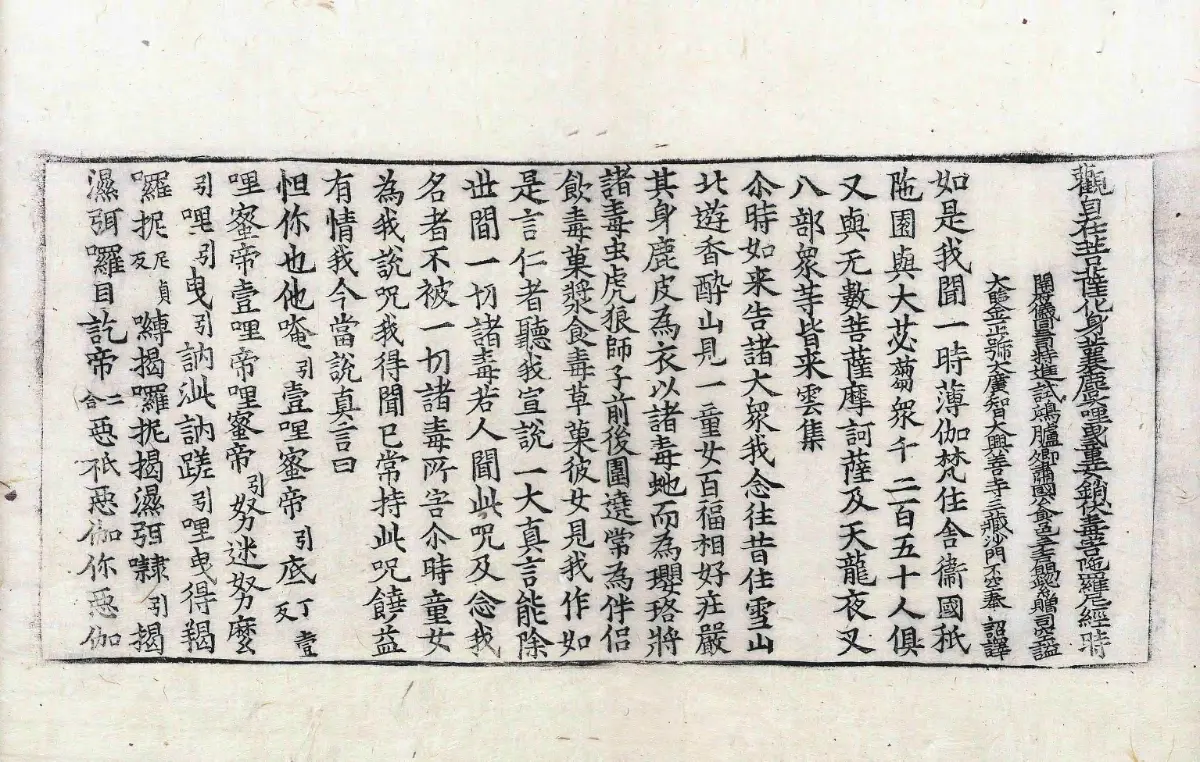 觀自在菩薩化身蘘麌哩曳童女銷伏毒害陀羅尼經時
開府儀同三司特進試鴻臚卿肅國公食邑三千戶賜紫贈司空謚
大鑒正號大廣智大興善寺三藏沙門不空奉 詔譯
如是我聞一時薄伽梵住舍衞國祇
陁園與大苾蒭衆千二百五十人俱
又與无數菩薩摩訶薩及天龍夜叉
八部衆等皆来雲集
尒時如来告諸大衆我念往昔住雪山
北遊香醉山見一童女百福相好疰嚴
其身鹿皮為衣以諸毒虵而為瓔珞將
諸毒虫虎狼師子前後圍遶常為伴侶
飲毒菓漿食毒草菓彼女見我作如
是言仁者聽我宣說一大真言能除
世間一切諸毒若人聞此咒及念我
名者不被一切諸毒所害尒時童女
為我說咒我得聞已常持此咒饒益
有情我今當說真言曰
怛你也他唵引壹哩蜜帝引底丁壹反
哩蜜帝壹哩帝哩蜜帝引努迷努麼
引哩引曳引訥泚訥蹉引哩曳得羯
囉抳尼貞反嚩揭囉抳揭濕弭隸引揭
濕弭囉目訖帝二合惡祇惡伽你惡伽